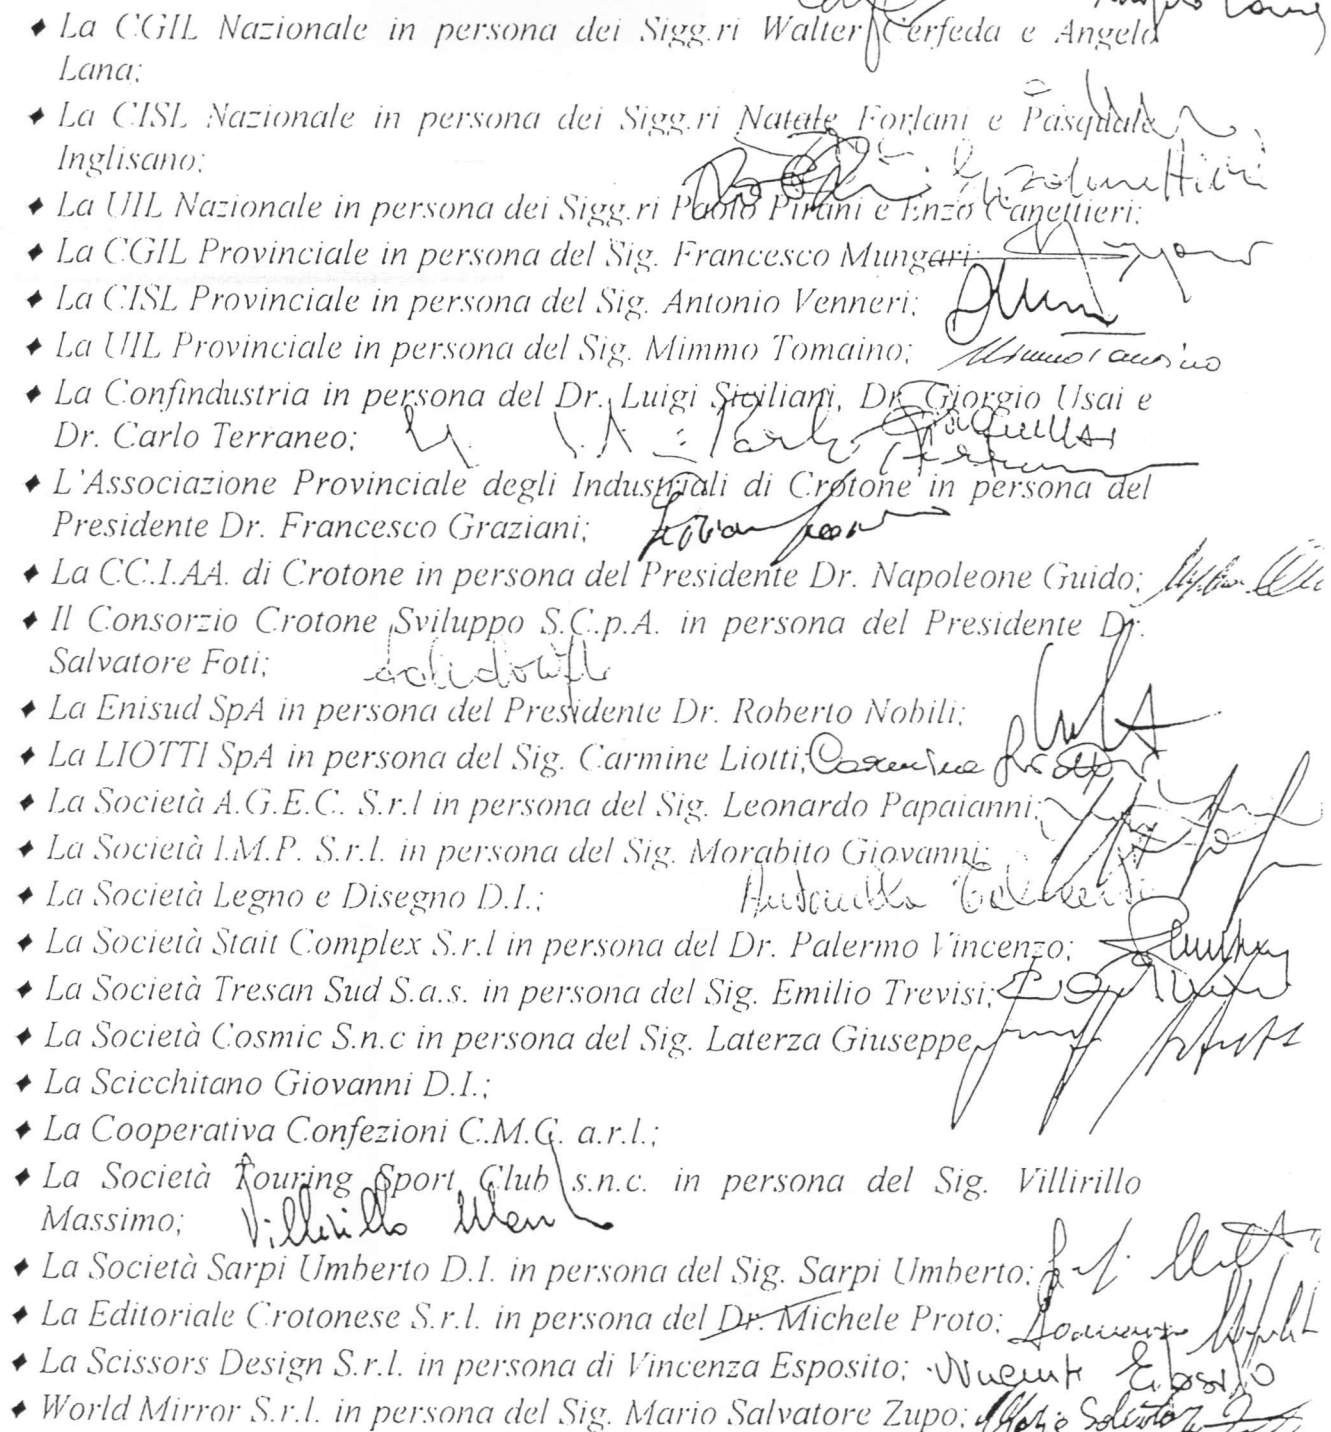 ♦ La CGIL Nazionale in persona dei Sigg.ri Walter Cerfeda e Angelo
Lana;
♦ La CISL Nazionale in persona dei Sigg.ri Natale Forlani e Pasquale
Inglisano;
♦ La UIL Nazionale in persona dei Sigg.ri Paolo Pirani e Enzo Canettieri;
♦ La CGIL Provinciale in persona del Sig. Francesco Mungari;
♦ La CISL Provinciale in persona del Sig. Antonio Venneri;
♦ La UIL Provinciale in persona del Sig. Mimmo Tomaino;
♦ La Confindustria in persona del Dr. Luigi Siciliani, Dr. Giorgio Usai e
Dr. Carlo Terraneo;
♦ L'Associazione Provinciale degli Industriali di Crotone in persona del
Presidente Dr. Francesco Graziani;
♦ La CC.I.AA. di Crotone in persona del Presidente Dr. Napoleone Guido;
♦ Il Consorzio Crotone Sviluppo S.C.p.A. in persona del Presidente Dr.
Salvatore Foti;
♦ La Enisud SpA in persona del Presidente Dr. Roberto Nobili;
♦ La LIOTTI SpA in persona del Sig. Carmine Liotti; Carmine Liotti
♦ La Società A.G.E.C. S.r.l in persona del Sig. Leonardo Papaianni;
♦ La Società I.M.P. S.r.l. in persona del Sig. Morabito Giovanni;
♦ La Società Legno e Disegno D.I.;
♦ La Società Stait Complex S.r.l in persona del Dr. Palermo Vincenzo;
♦ La Società Tresan Sud S.a.s. in persona del Sig. Emilio Trevisi;
♦ La Società Cosmic S.n.c in persona del Sig. Laterza Giuseppe
♦ La Scicchitano Giovanni D.I.;
♦ La Cooperativa Confezioni C.M.G. a.r.l.;
♦ La Società Touring Sport Club s.n.c. in persona del Sig. Villirillo
Massimo; Villirillo
♦ La Società Sarpi Umberto D.I. in persona del Sig. Sarpi Umberto;
♦ La Editoriale Crotonese S.r.l. in persona del Dr. Michele Proto;
♦ La Scissors Design S.r.l. in persona di Vincenza Esposito;
♦ World Mirror S.r.l. in persona del Sig. Mario Salvatore Zupo;